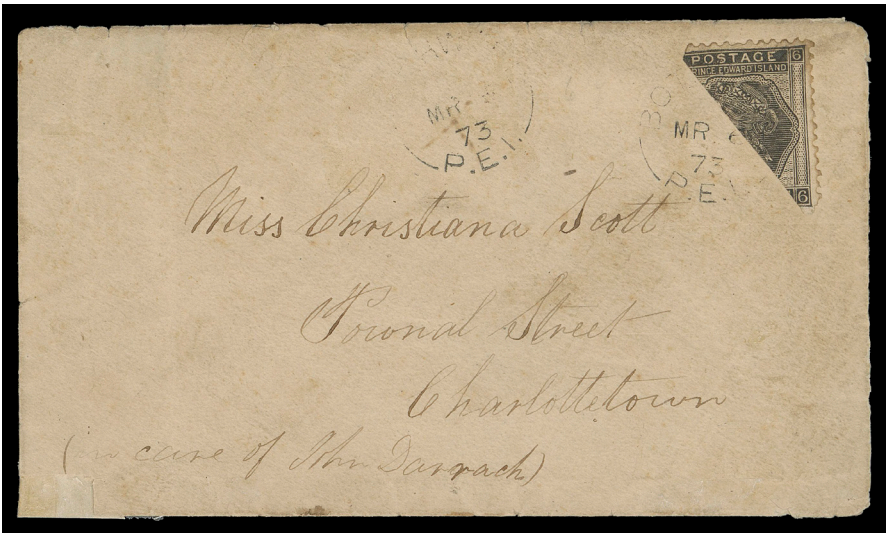 POSTAGE 6
PRINCE EDWARD ISLAND
6
MR
73
P.E.I.
MR 6
73
P.E.
Miss Christiana Scott
Pownal Street
Charlottetown
(in care of John Darrach)